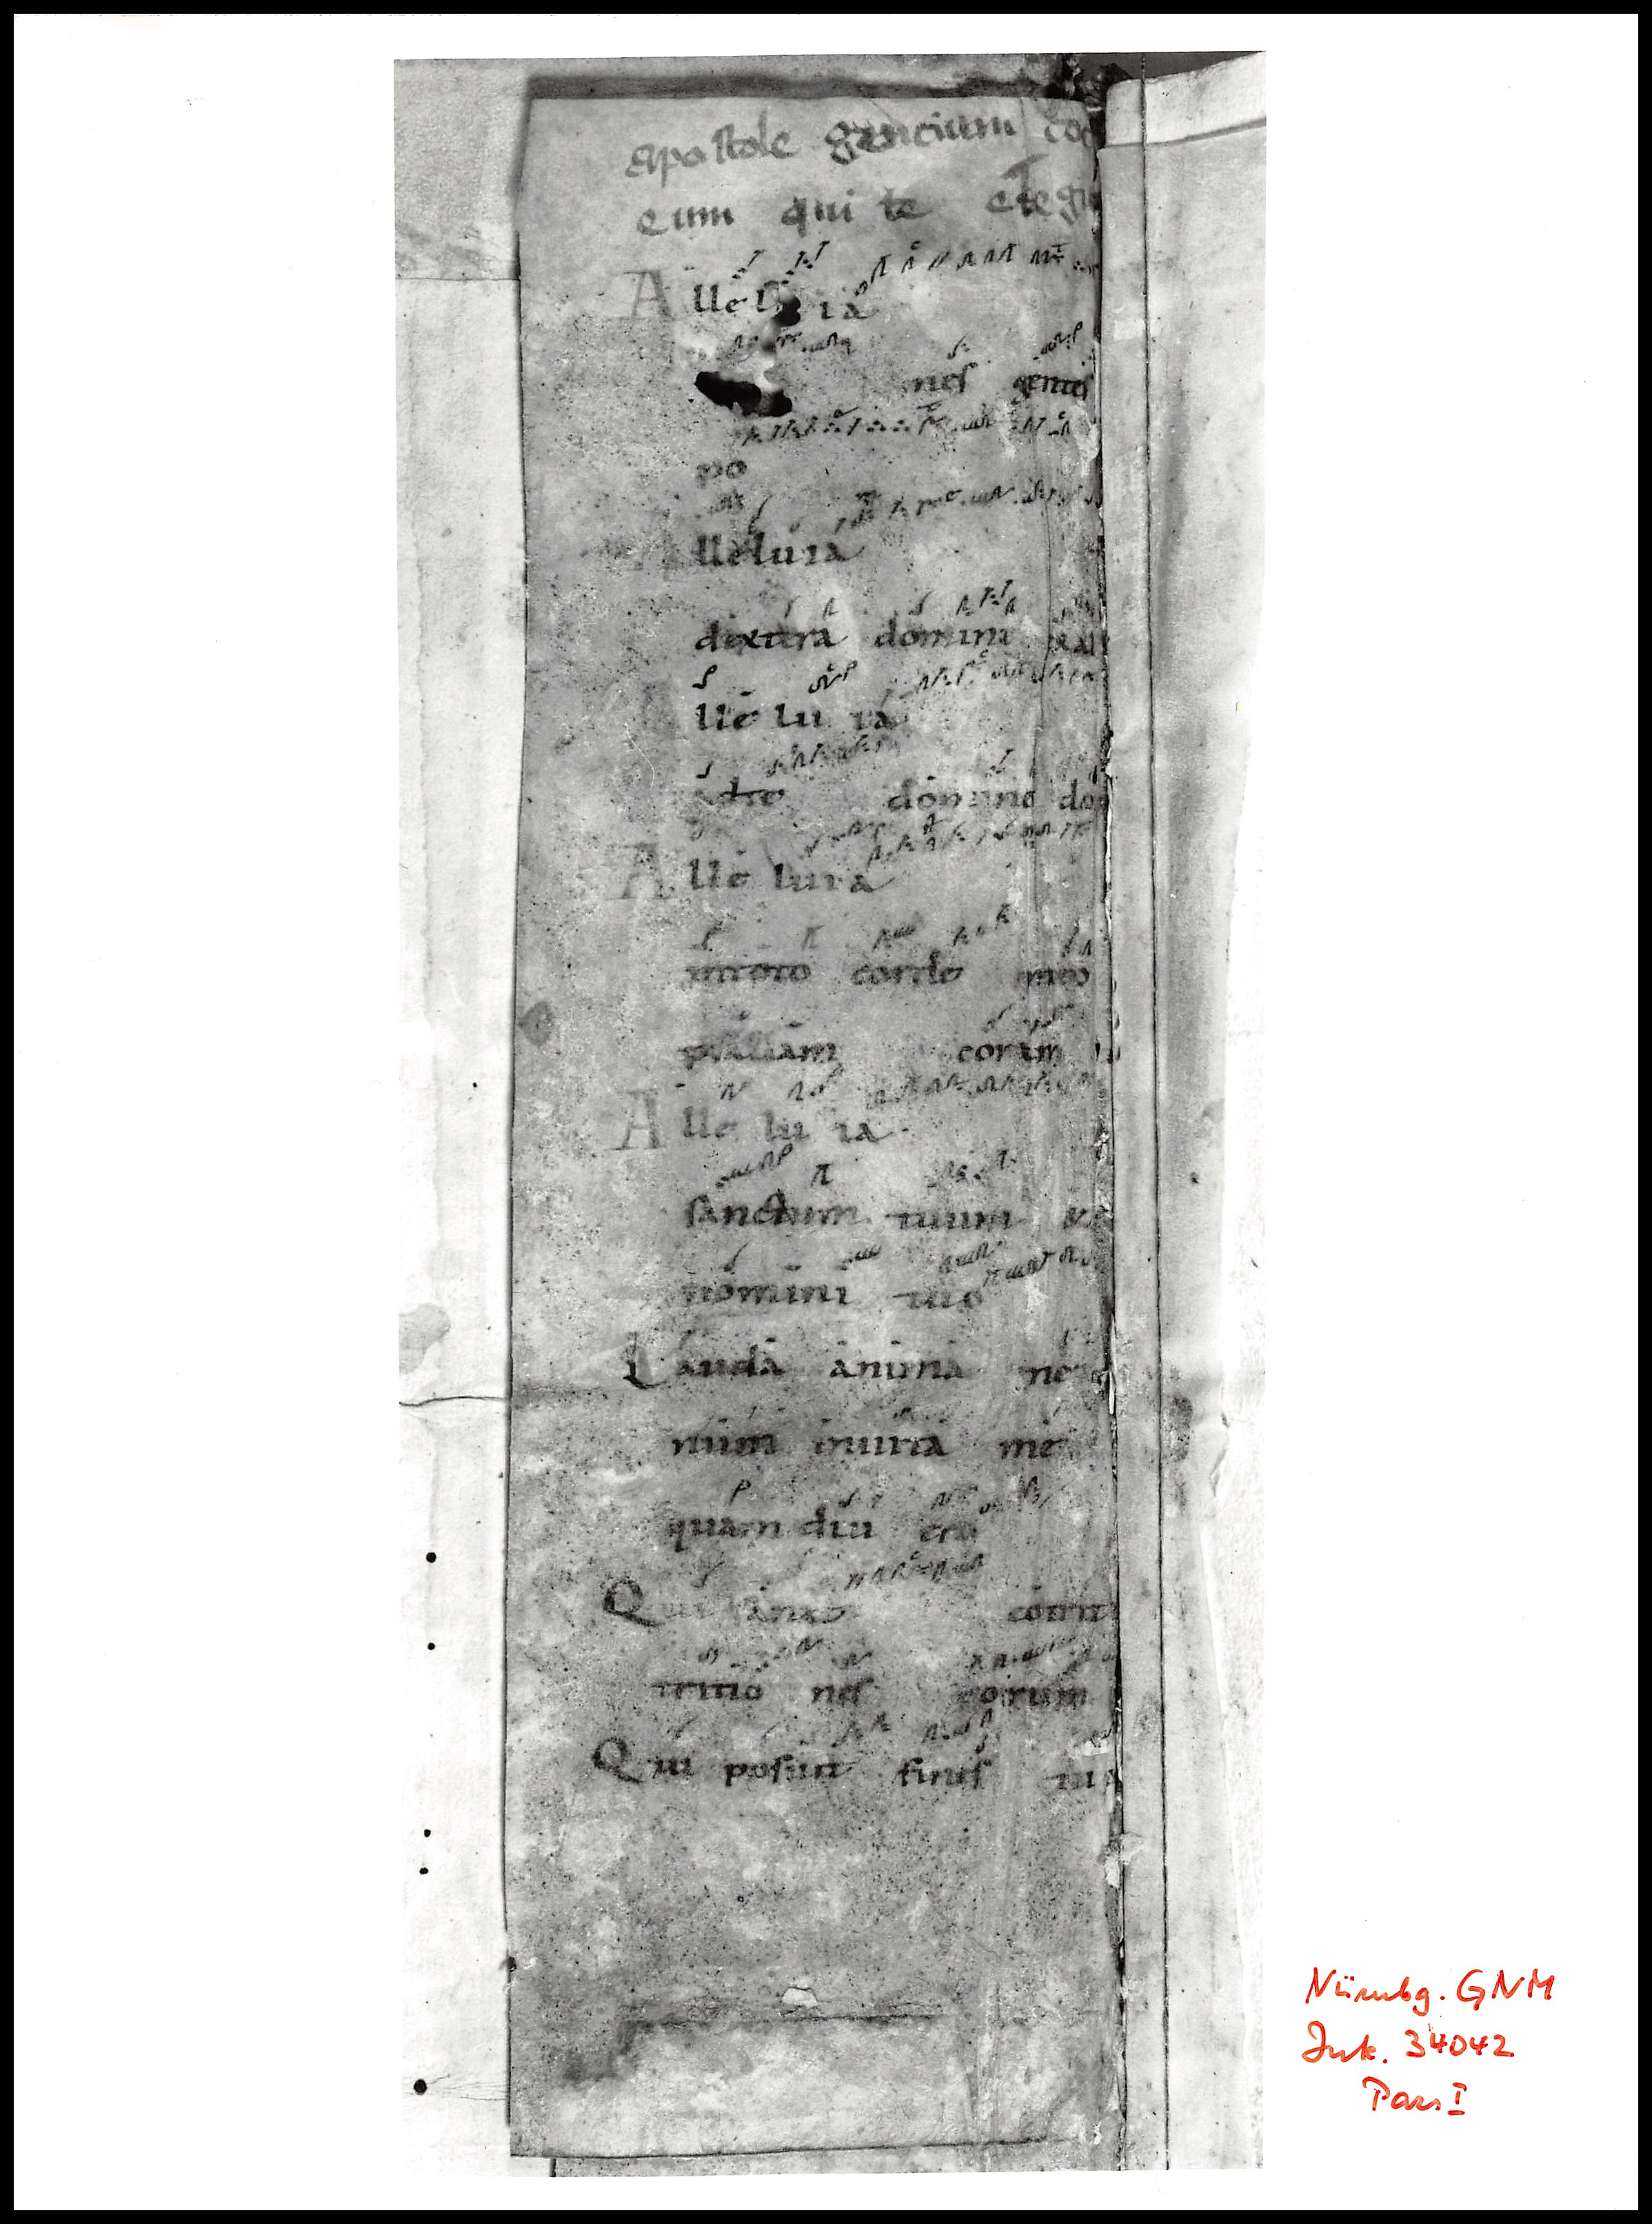 apostole gencium doc
eum qui te elegit
Alleluia
nes gentes
po
lleluia
dextera domini exal
lle lu ia
domine do
Alle luia
intoto corde meo
psallam coram
Alle lu ia
sanctum tuum
nomini tuo
Lauda anima mea
num inuita me
quamdiu ero
Qui sanat contri
tritio nes eorum
Qui posuit fines tuo
Nürnbg. GNM
Ink. 34042
Pars I